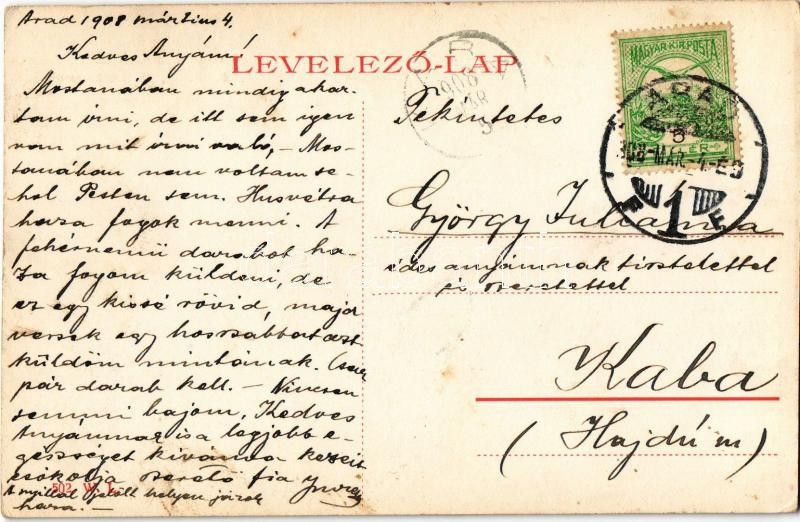 Arad 1908 március 4.
Kedves Anyám!
Mostanában mindig akar-
tam irni, de itt sem igen
van mit irni való, – Mos-
tanában nem voltam se-
hol Pesten sem. Husvétra
haza fogok menni. A
fehérnemü darabot ha-
za fogom küldeni, de
ez egy kissé rövid, majd
versek egy hosszabbat azt
küldöm mintának.
pár darab kell. – Nincsen
semmi bajom, Kedves
Anyámnak is a legjobb e-
gészséget kivánva kezeit
csókolja szerető fia
A nyillal jelölt helyen járok
haza. –
502. W. L.
LEVELEZŐ-LAP
Tekintetes
György Julianna
édes anyámnak tisztelettel
és szeretettel
Kaba
(Hajdú m)
MAGYAR KIR. POSTA
908 MÁR 4
1